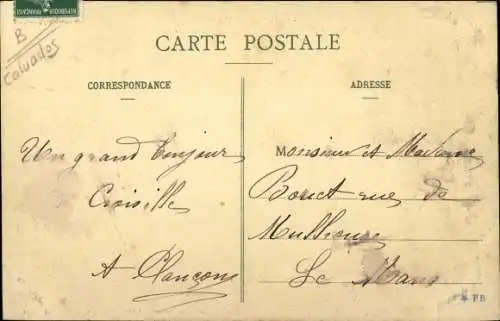 RÉPUBLIQUE FRANÇAISE
B
Calvados
CARTE POSTALE
CORRESPONDANCE
ADRESSE
Un grand bonjour
Croisille
A Plançon
Monsieur et Madame
Bouet rue de
Mulhouse
Le Mans
PB